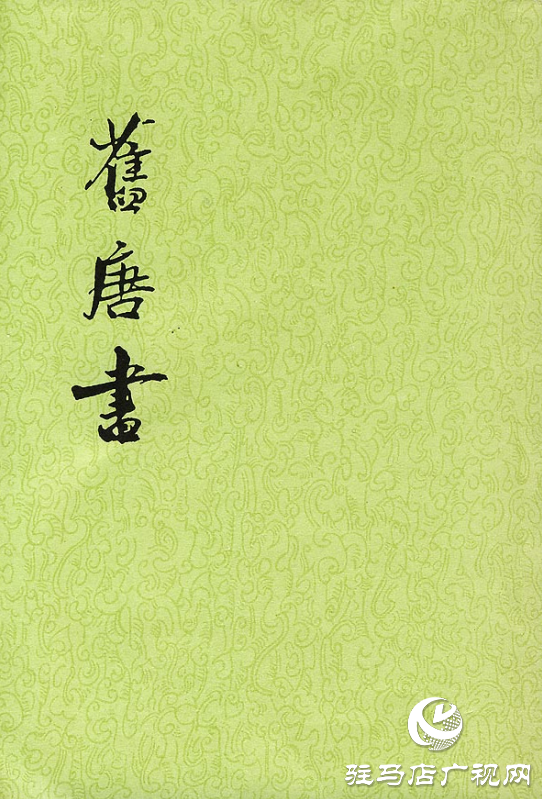 舊唐書
驻马店广视网